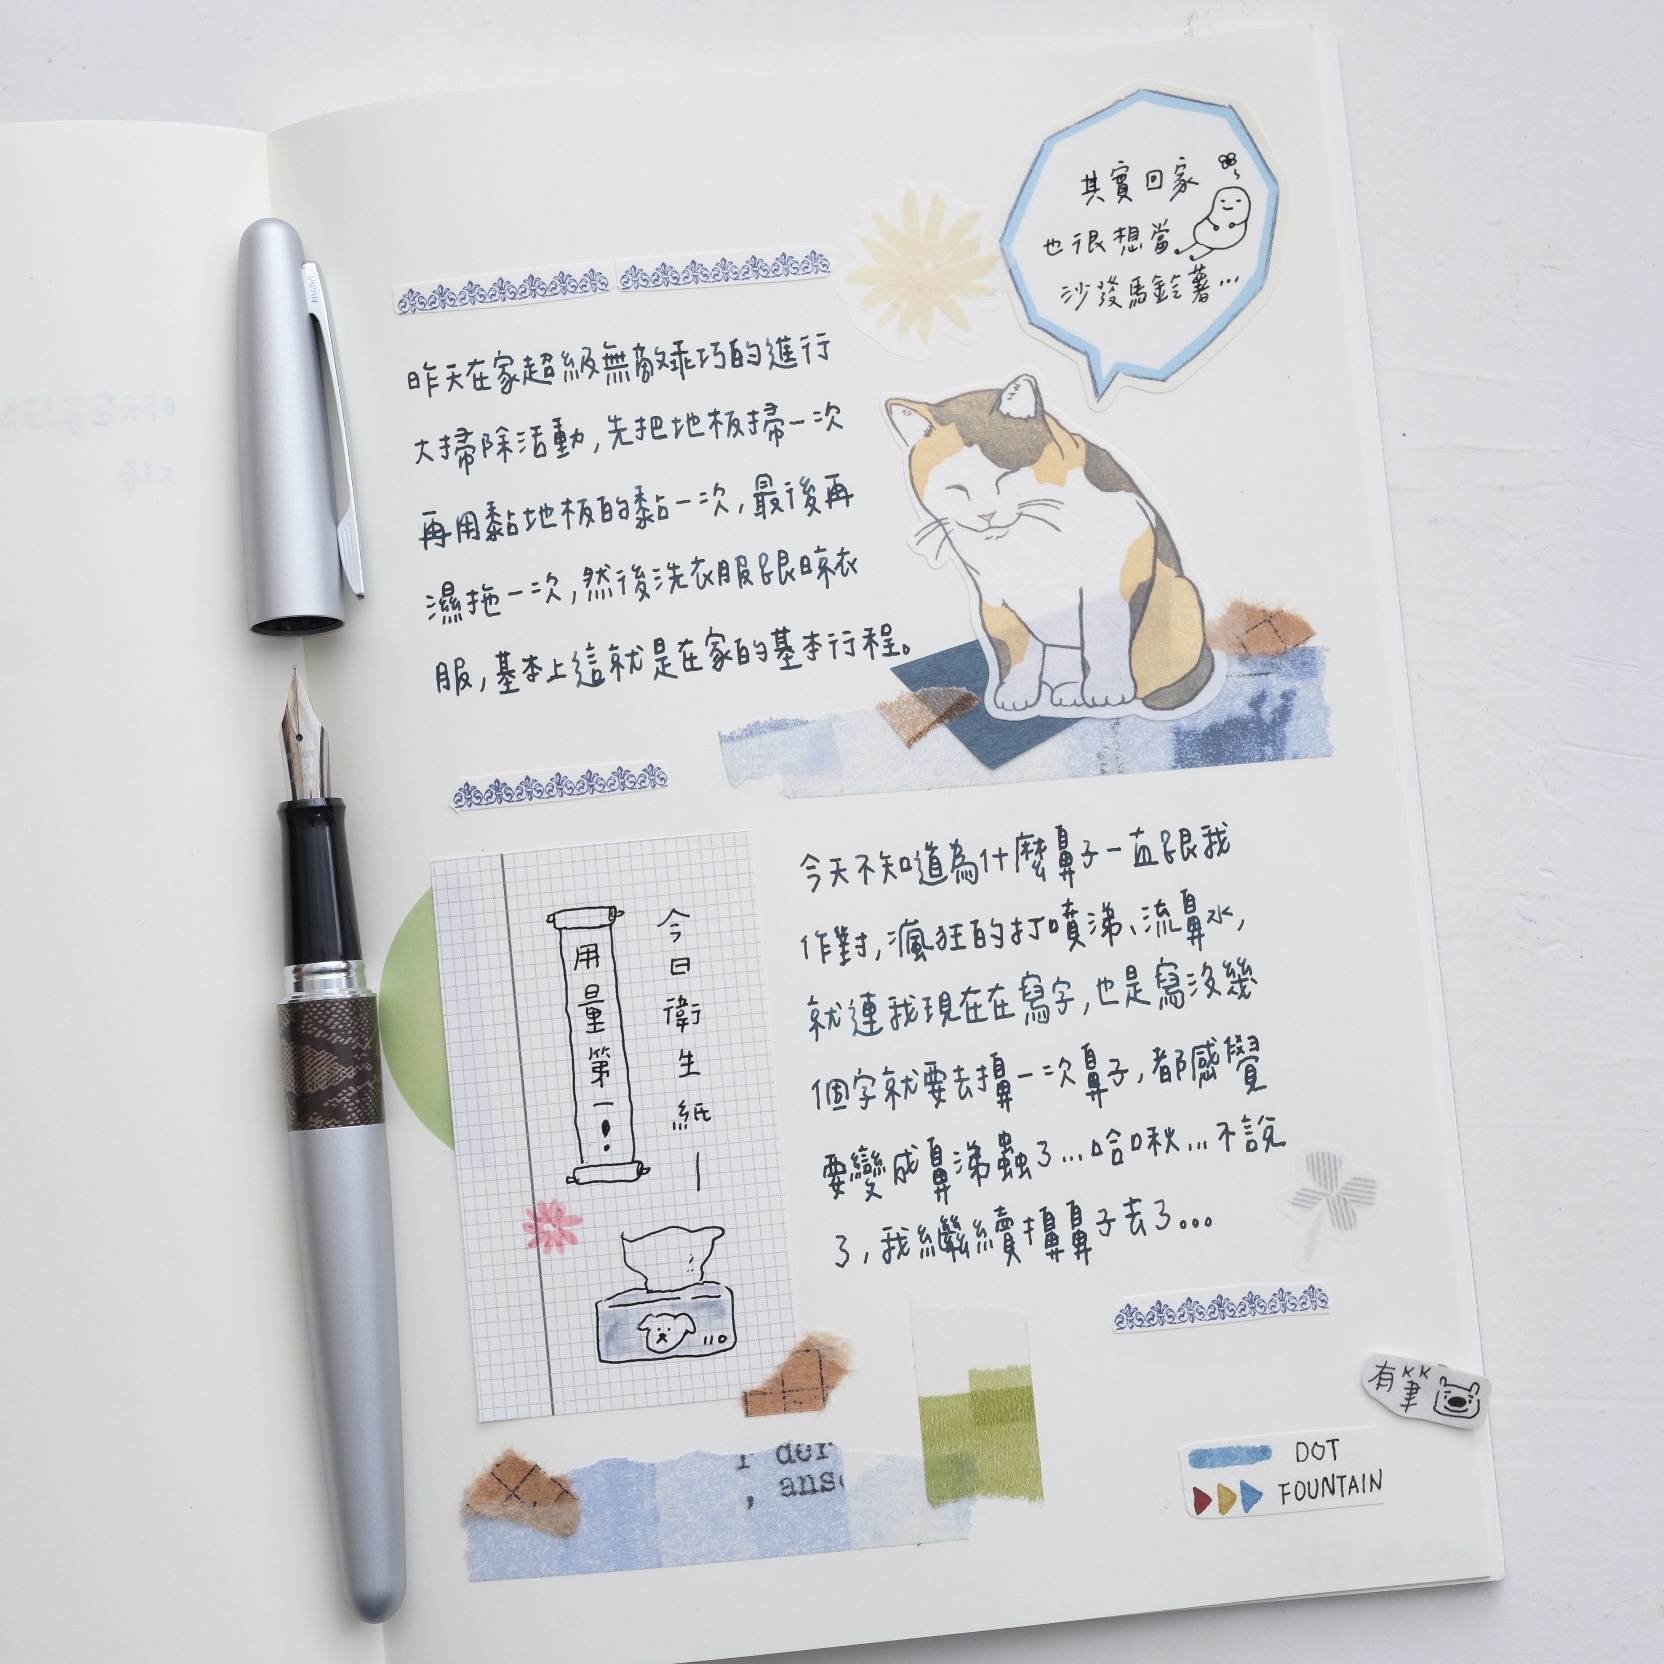 其實回家
也很想當
沙發馬鈴薯…
昨天在家超級無敵乖巧的進行
大掃除活動,先把地板掃一次
再用黏地板的黏一次,最後再
濕拖一次,然後洗衣服跟晾衣
服,基本上這就是在家的基本行程。
今日衛生紙—
用量第一!
110
今天不知道為什麼鼻子一直跟我
作對,瘋狂的打噴涕、流鼻水,
就連我現在在寫字,也是寫沒幾
個字就要去擤一次鼻子,都感覺
要變成鼻涕蟲了…哈啾…不說
了,我繼續擤鼻子去了...
r der
, anse
有筆
KK
DOT
FOUNTAIN
JAPAN